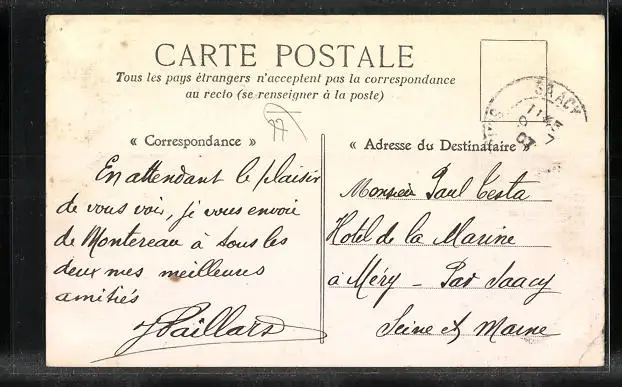 CARTE POSTALE
Tous les pays étrangers n'acceptent pas la correspondance
au recto (se renseigner à la poste)
77
« Correspondance »
En attendant le plaisir
de vous voir, je vous envoie
de Montereau à tous les
deux mes meilleures
amitiés
« Adresse du Destinataire »
Monsieur Paul Testa
Hotel de la Marine
à Méry - Par Saacy
Seine et Marne
SAACY